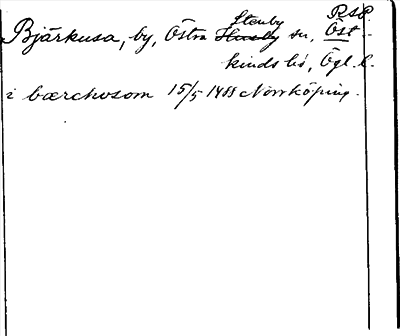 Stenby RSP.
Bjärkusa, by, Östra Husby sn, Öst-
kinds hd, Ögl. l.
i bærchosom 15/5 1488 Norrköping.